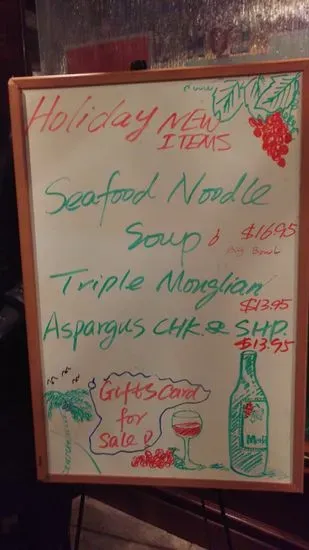 Holiday NEW
ITEMS
Seafood Noodle
Soup $16.95
Big Bowl
Triple Mouglian
$13.95
Aspargus CHK & SHP.
$13.95
Gifts Card
for
Sale